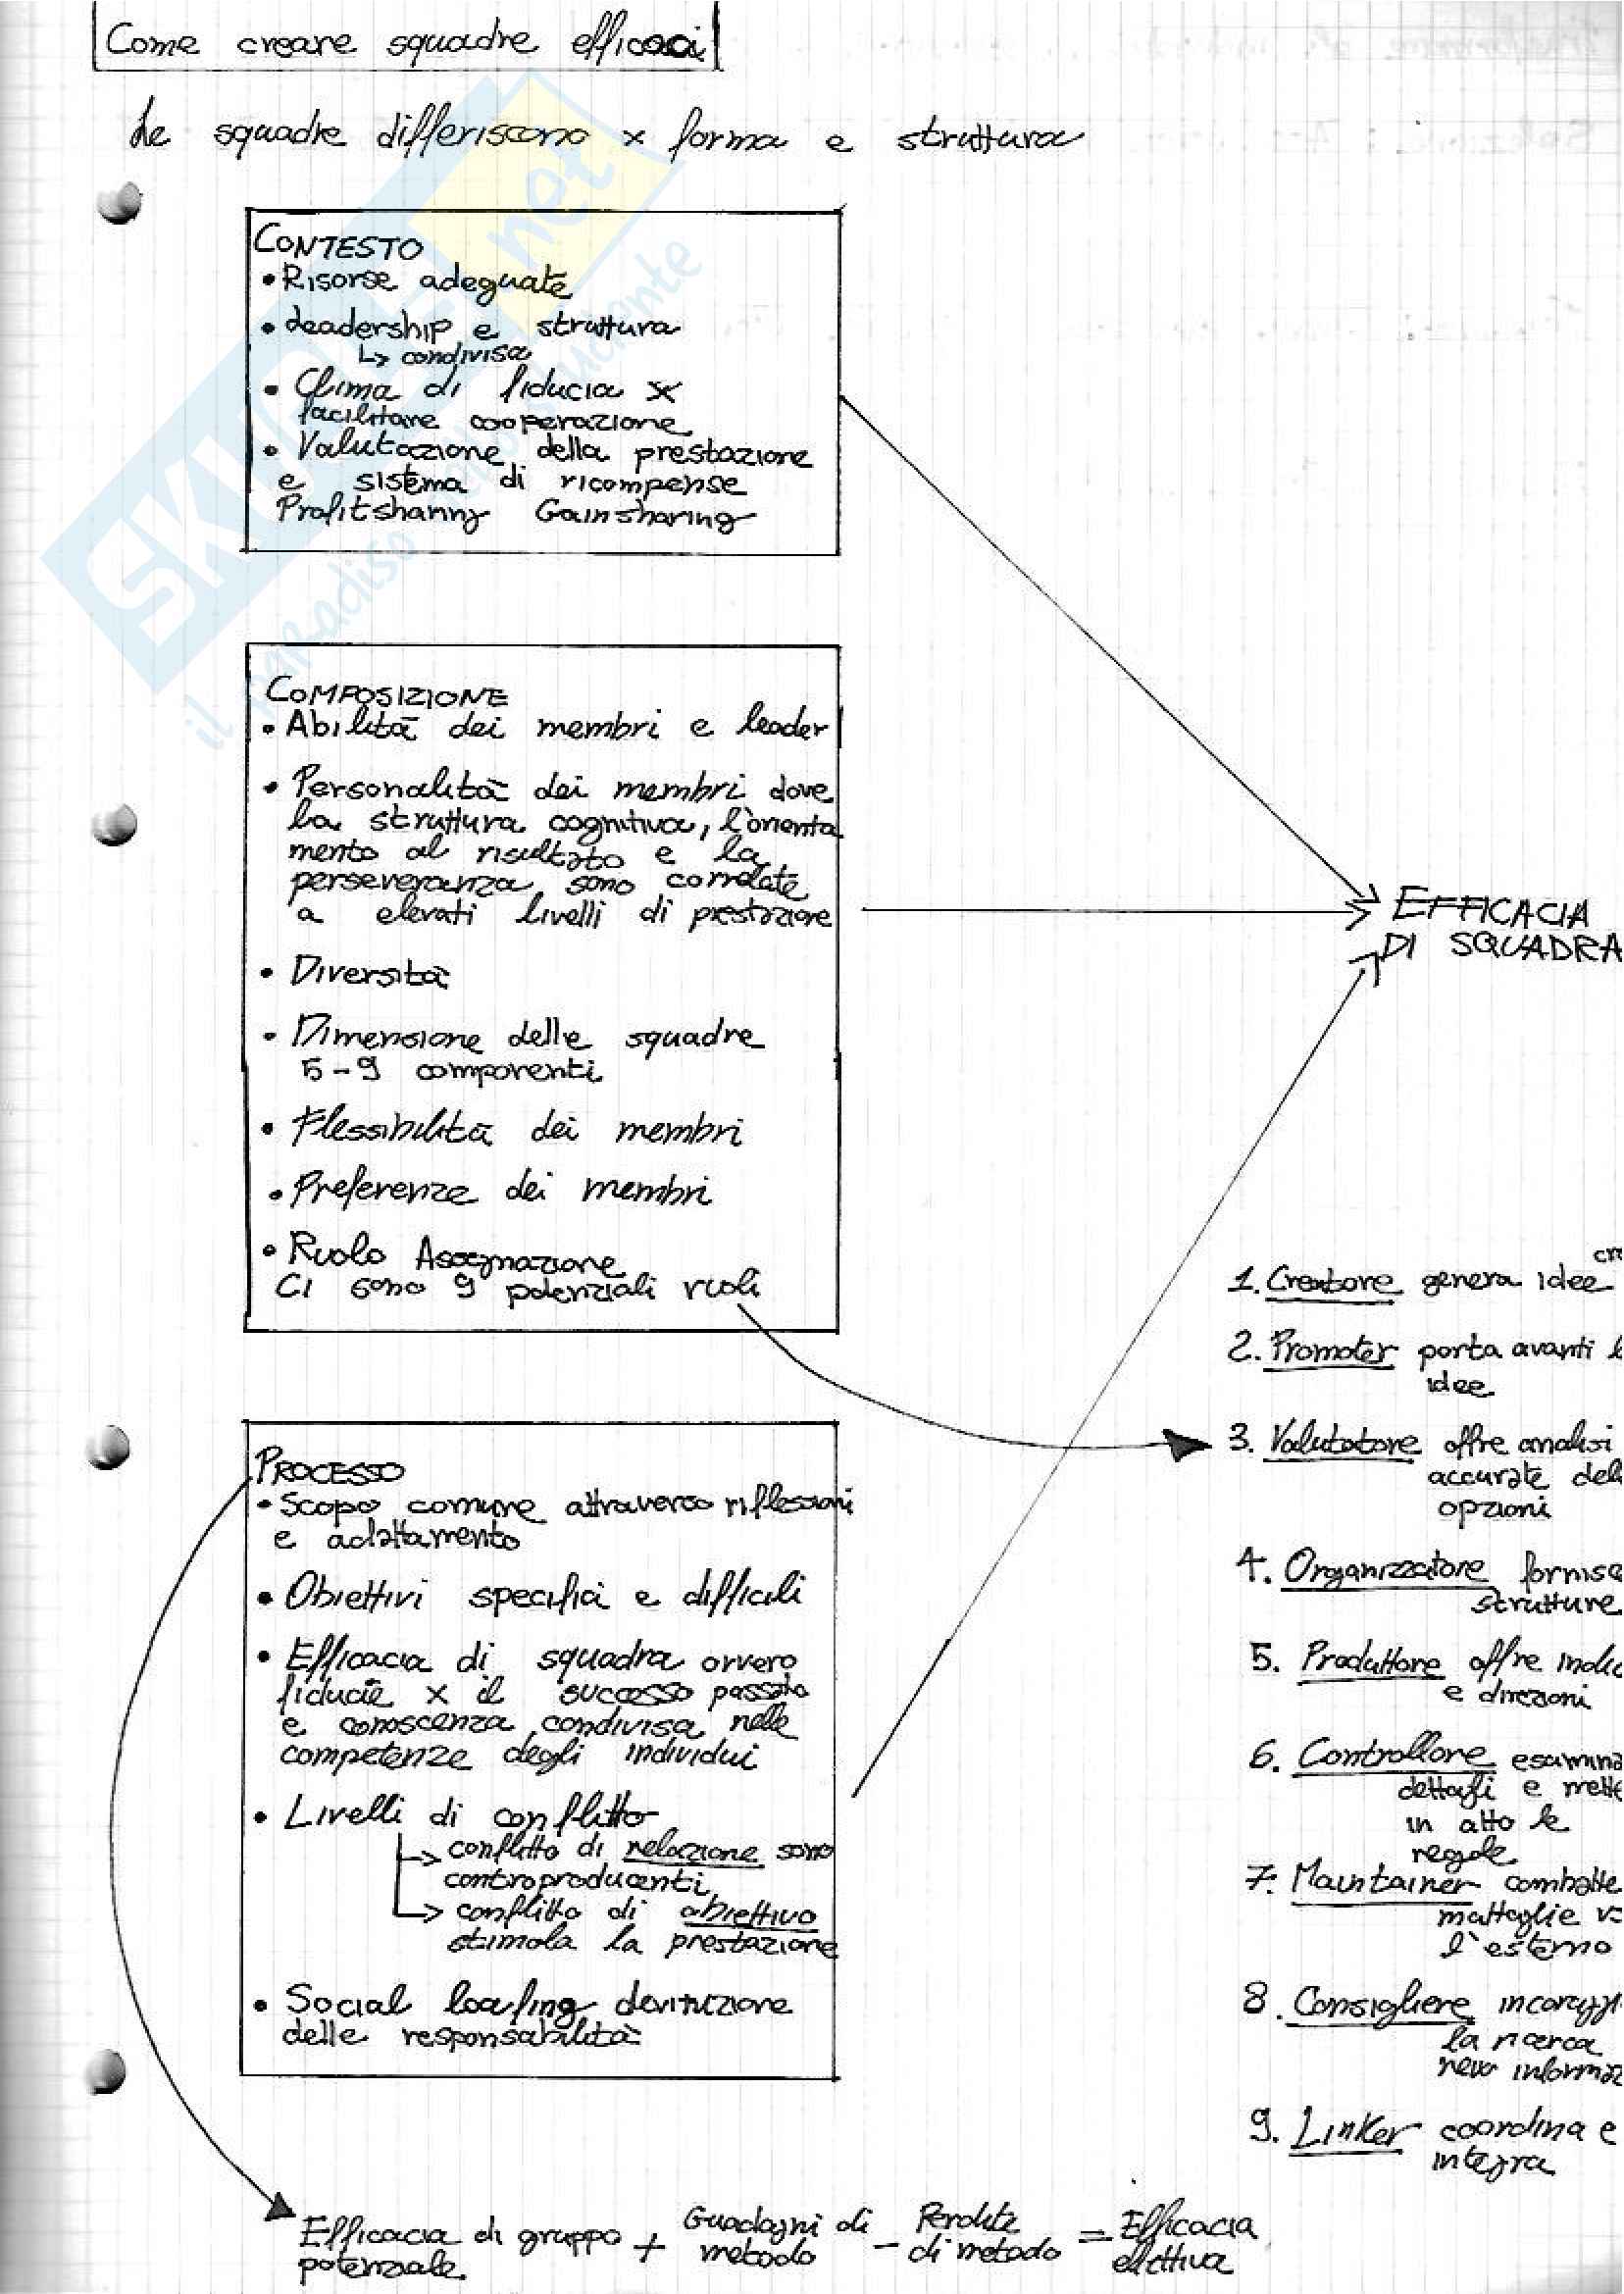 Come creare squadre efficaci
Le squadre differiscono x forma e struttura
CONTESTO
• Risorse adeguate
• Leadership e struttura
↳ condivisa
• Clima di fiducia x
facilitare cooperazione
• Valutazione della prestazione
e sistema di ricompense
Profitsharing Gainsharing
COMPOSIZIONE
• Abilità dei membri e leader
• Personalità dei membri dove
la struttura cognitiva, l'orienta
mento al risultato e la
perseveranza sono correlate
a elevati livelli di prestazione
• Diversità
• Dimensione delle squadre
5-9 componenti
• Flessibilità dei membri
• Preferenze dei membri
• Ruolo Assegnazione
Ci sono 9 potenziali ruoli
EFFICACIA
DI SQUADRA
PROCESSO
• Scopo comune attraverso riflessioni
e adattamento
• Obiettivi specifici e difficili
• Efficacia di squadra ovvero
fiducia x il successo passato
e conoscenza condivisa nelle
competenze degli individui
• Livelli di conflitto
→ conflitto di relazione sono
controproducenti
→ conflitto di obiettivo
stimola la prestazione
• Social loafing
delle responsabilità
cre
1. Creatore genera idee
2. Promoter porta avanti l
idee
3. Valutatore offre analisi
accurate del
opzioni
4. Organizzatore fornisc
strutture
5. Produttore offre indic
e direzioni
6. Controllore esamina
dettagli e mette
in atto le
regole
7. Maintainer combatte
mattaglie vs
l'esterno
8. Consigliere incoraggi
la ricerca
informaz
9. Linker coordina e
integra
Efficacia di gruppo + Guadagni di - Perdite = Efficacia
potenziale metodo di metodo effettiva
SKUOLA.net
il paradiso dello studente